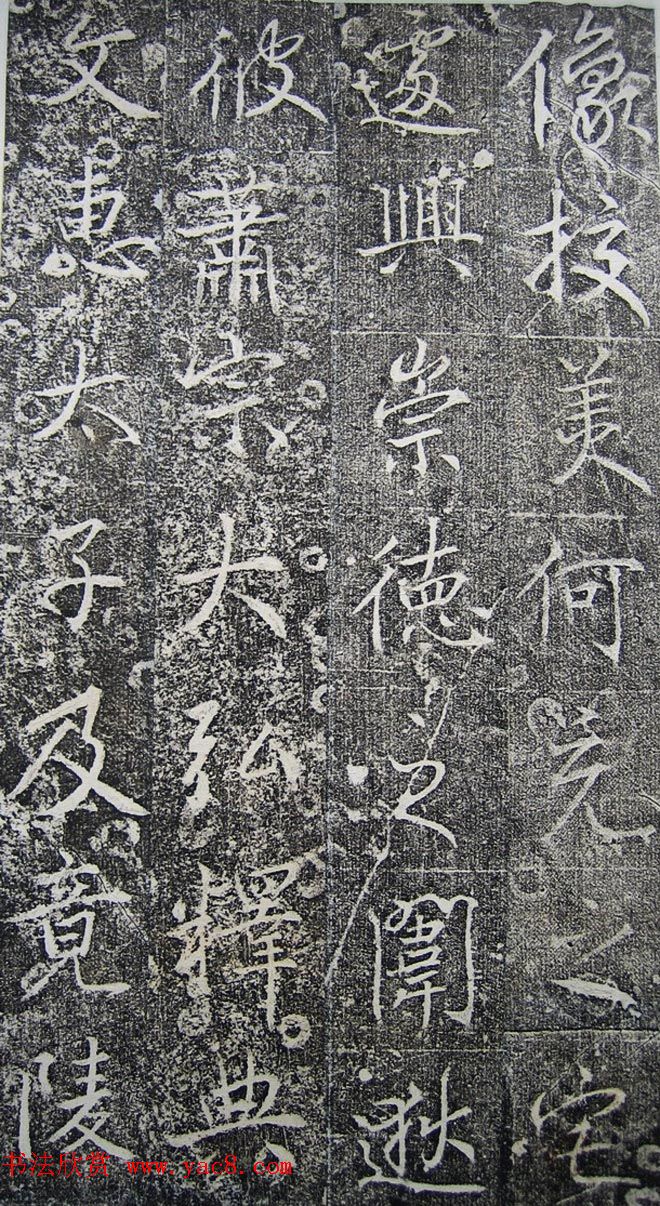 像挍美何充之宅
遽興崇德之闈逖
彼蕭宗大弘釋典
文惠太子及竟陵
书法欣赏 www.yac8.com